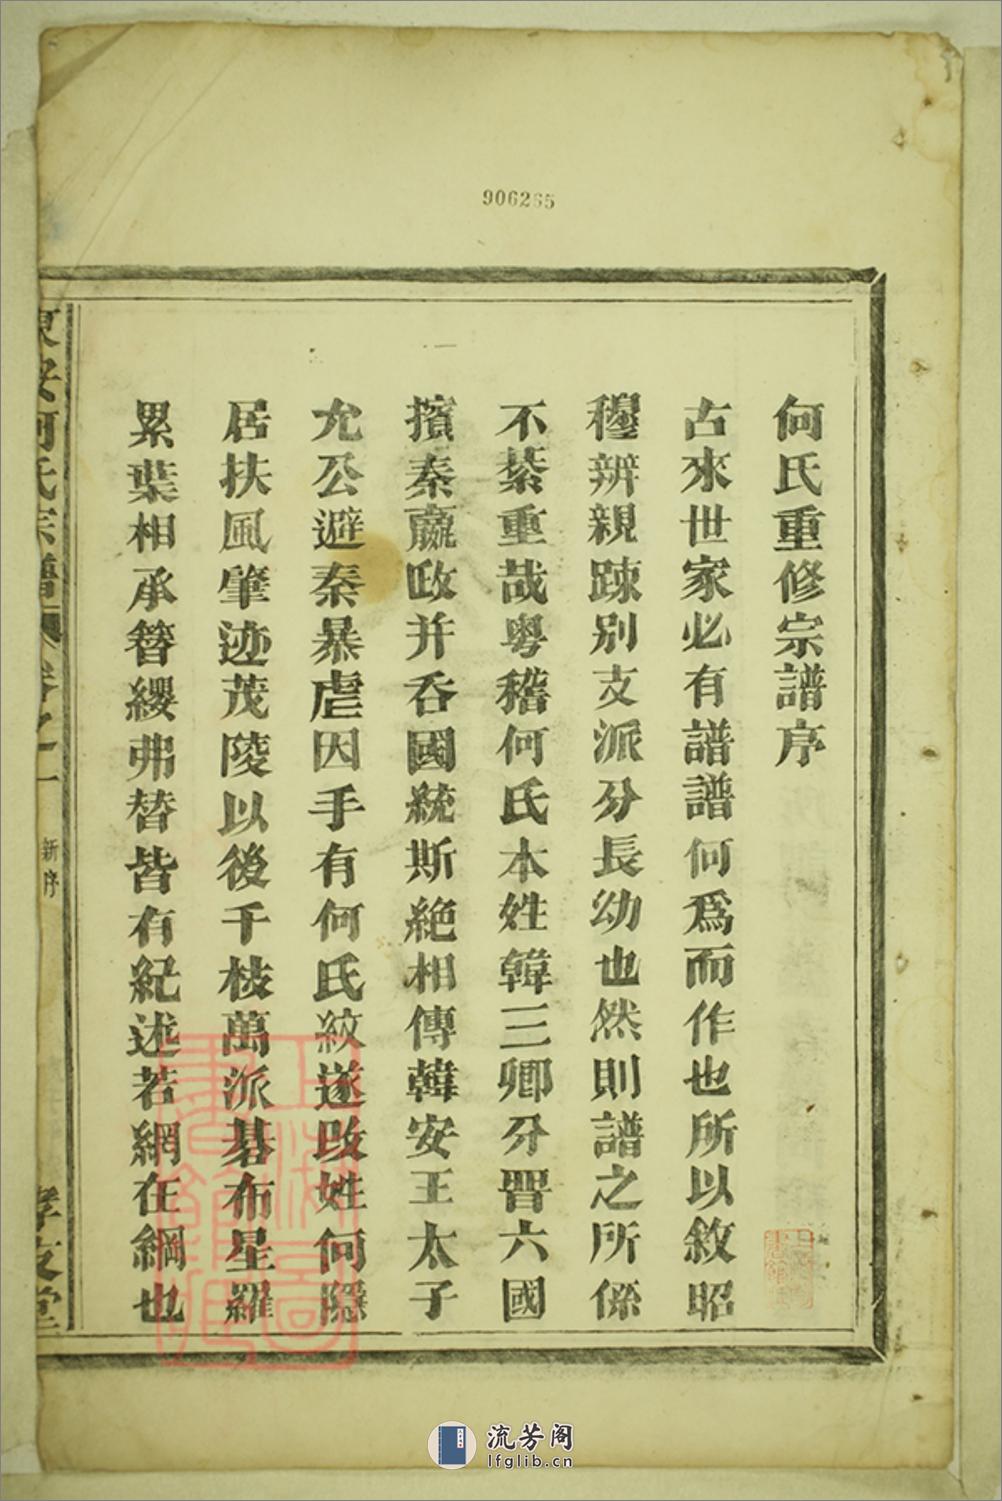 906265
何氏重修宗譜序
古來世家必有譜譜何爲而作也所以敘昭
穆辨親疎別支派分長幼也然則譜之所係
不綦重哉粤稽何氏本姓韓三卿分晉六國
擯秦嬴政并吞國統斯絶相傳韓安王太子
允公避秦暴虐因手有何氏紋遂改姓何隱
居扶風肇迹茂陵以後千枝萬派碁布星羅
累葉相承簪纓弗替皆有紀述若網在綱也
東安何氏宗譜 卷之一 新序 孝友堂
上海圖書館藏
流芳阁
lfglib.cn